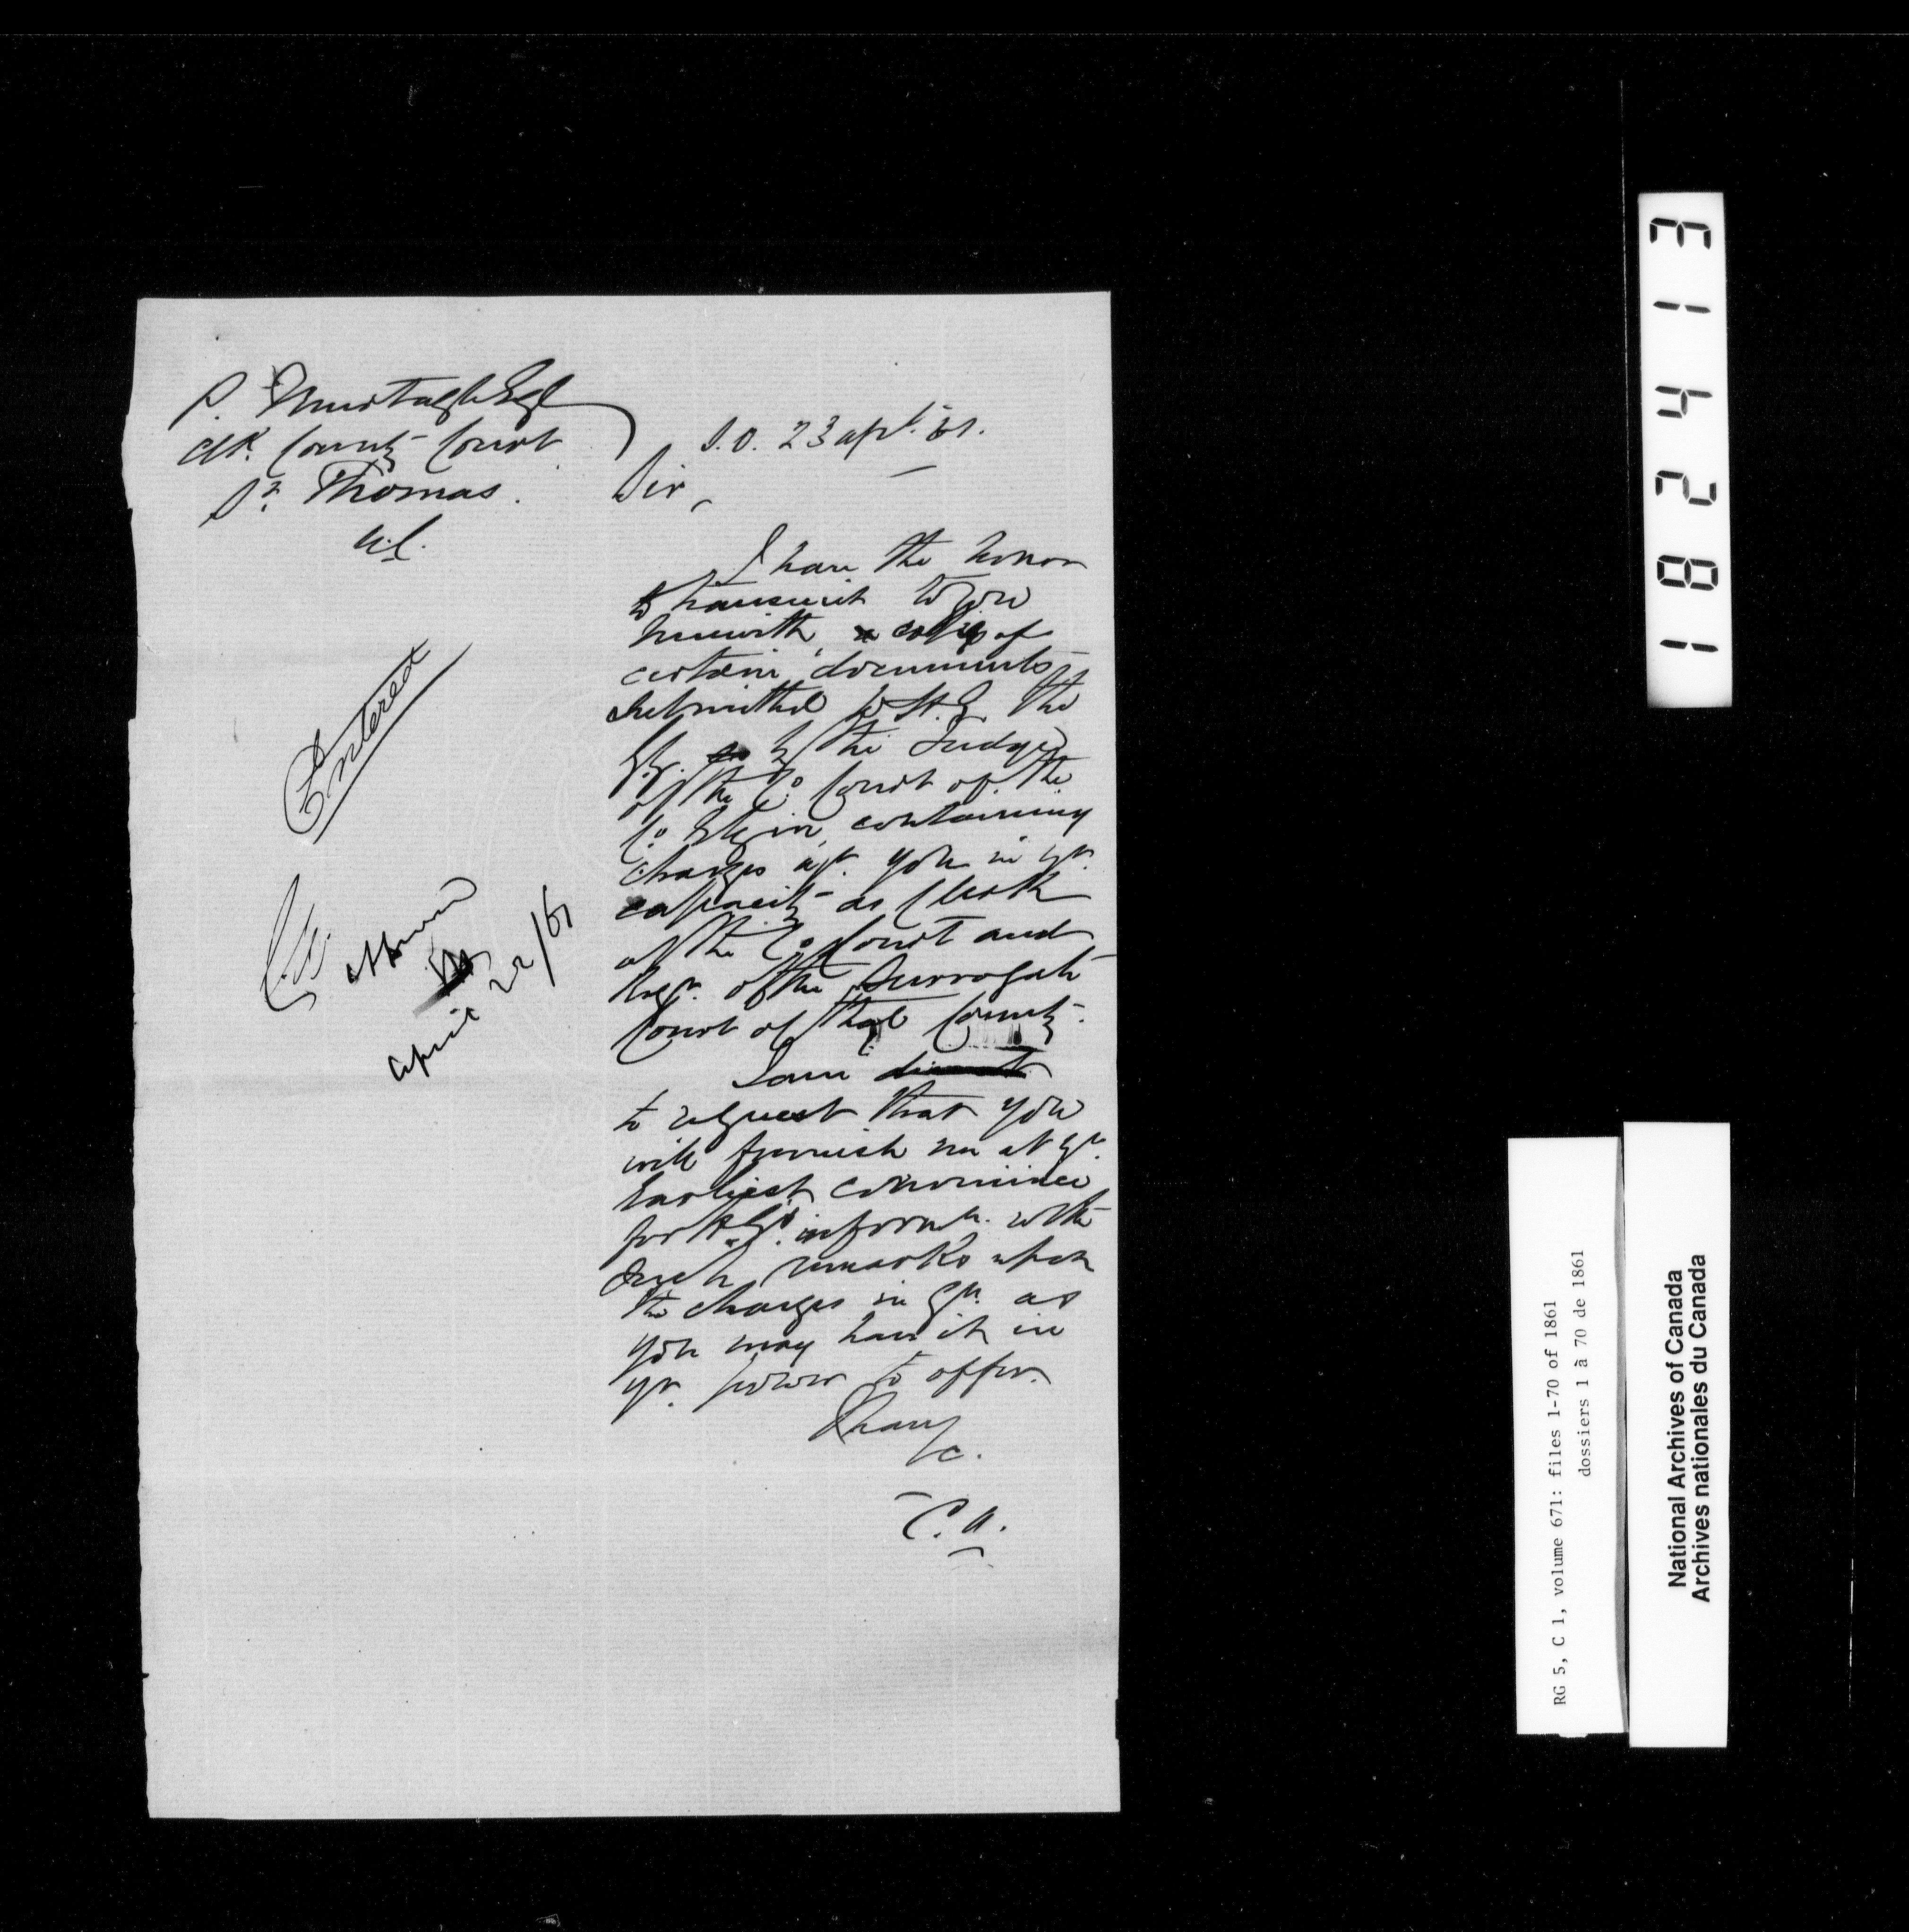 P. Murtagh Esqr
Clk. County Court
St. Thomas.
U.C.
S.O. 23 Apl. 61.
Sir,
I have the honor
to transmit to you
herewith, copies of
certain documents
submitted to H.E. the
G.G. by the Judge
of the Co. Court of the
Co. Elgin, containing
charges agt. you in yr.
capacity as Clerk
of the Co. Court and
Regr. of the Surrogate
Court of that County.
I am
to request that you
will furnish me at yr.
earliest convenience
for H.E's. informn. with
such remarks upon
the charges in qn. as
you may have it in
yr. power to offer.
I have
&c.
C.A.
Entered
Approved
April 22/61
182413
RG 5, C 1, volume 671: files 1-70 of 1861
dossiers 1 à 70 de 1861
National Archives of Canada
Archives nationales du Canada